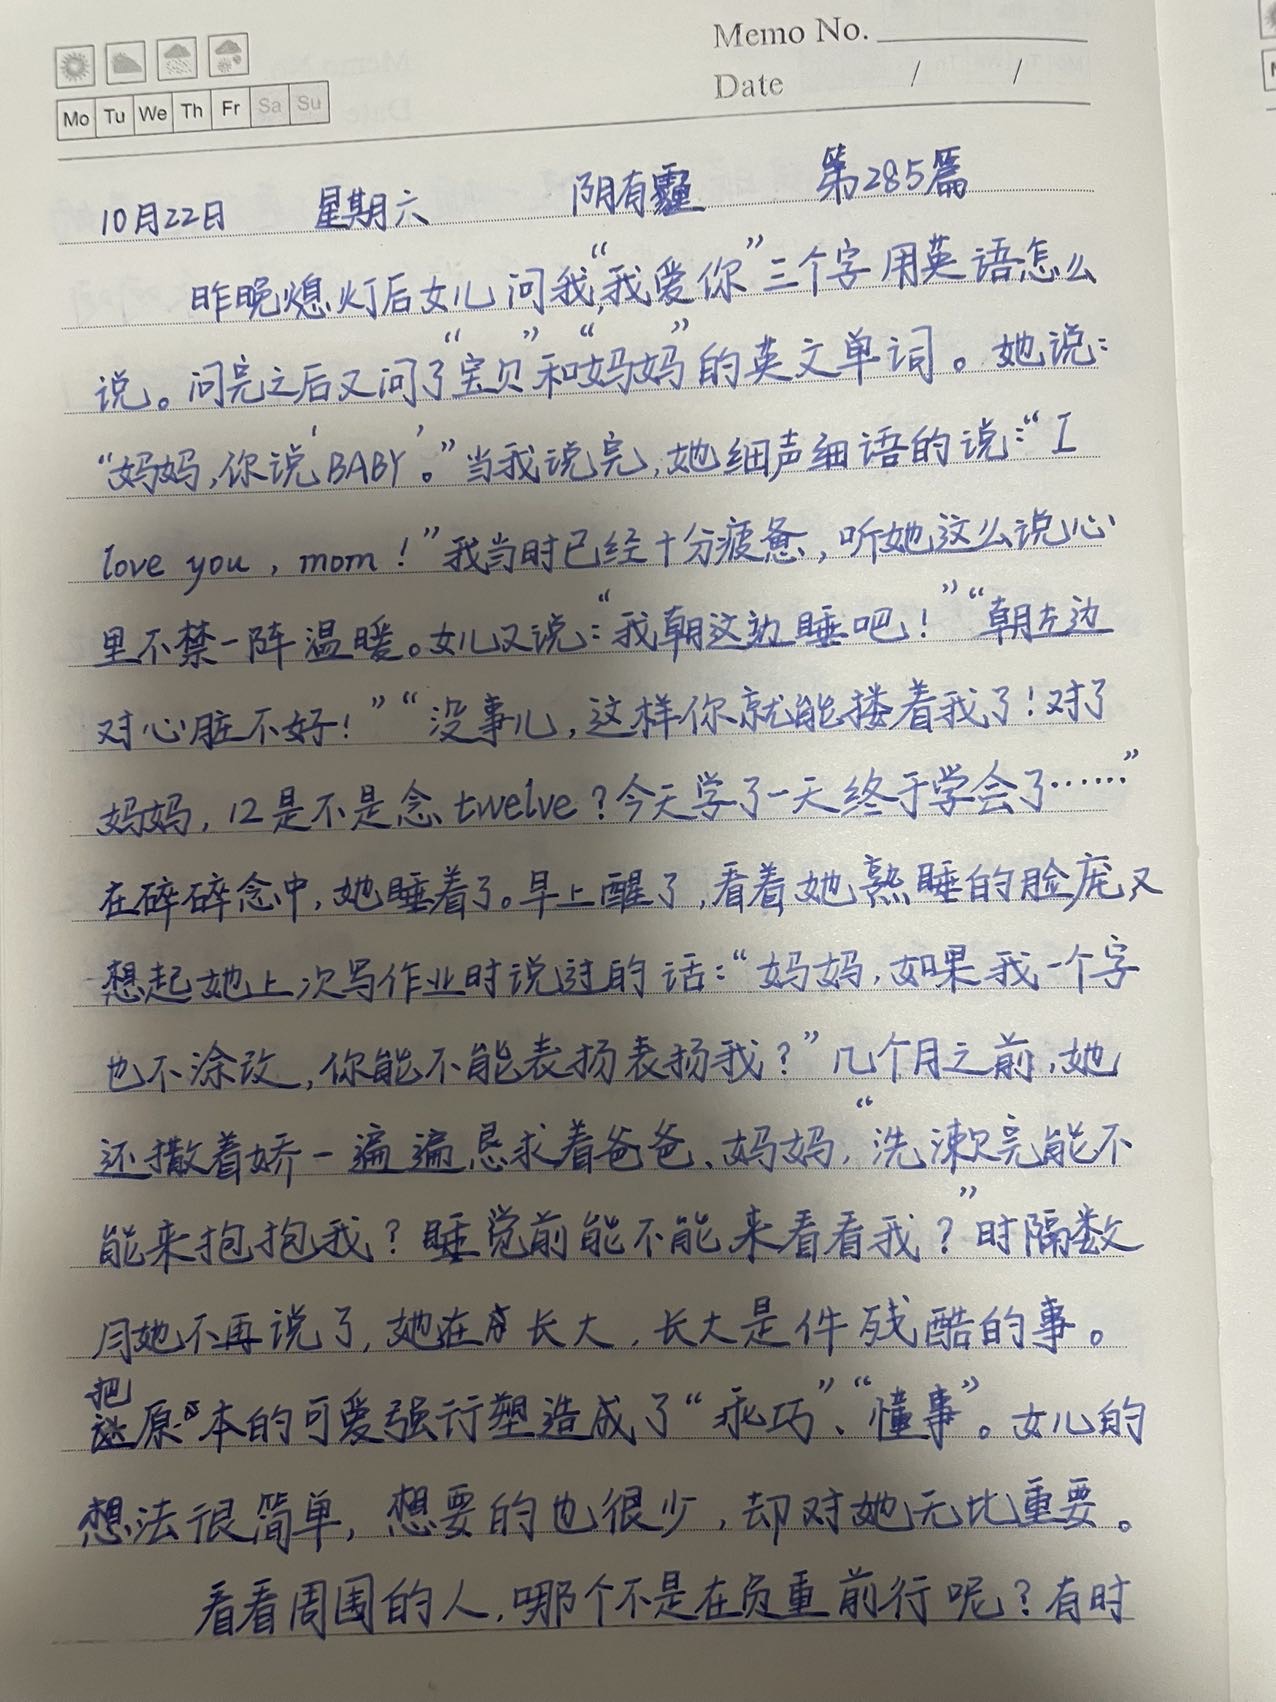 Memo No.
Mo Tu We Th Fr Sa Su
Date / /
10月22日 星期六 阴有霾 第285篇
昨晚熄灯后女儿问我“我爱你”三个字用英语怎么
说。问完之后又问了“宝贝”和“妈妈”的英文单词。她说:
“妈妈,你说‘BABY’。”当我说完,她细声细语的说:“I
love you, mom!”我当时已经十分疲惫,听她这么说心
里不禁一阵温暖。女儿又说:“我朝这边睡吧!”“朝左边
对心脏不好!”“没事儿,这样你就能搂着我了!对了
妈妈,12是不是念twelve?今天学了一天终于学会了……”
在碎碎念中,她睡着了。早上醒了,看着她熟睡的脸庞,又
想起她上次写作业时说过的话:“妈妈,如果我一个字
也不涂改,你能不能表扬表扬我?”几个月之前,她
还撒着娇一遍遍恳求着爸爸、妈妈,“洗漱完能不
能来抱抱我?睡觉前能不能来看看我?”时隔数
月她不再说了,她在长大,长大是件残酷的事。
把原本的可爱强行塑造成了“乖巧”、“懂事”。女儿的
想法很简单,想要的也很少,却对她无比重要。
看看周围的人,哪个不是在负重前行呢?有时